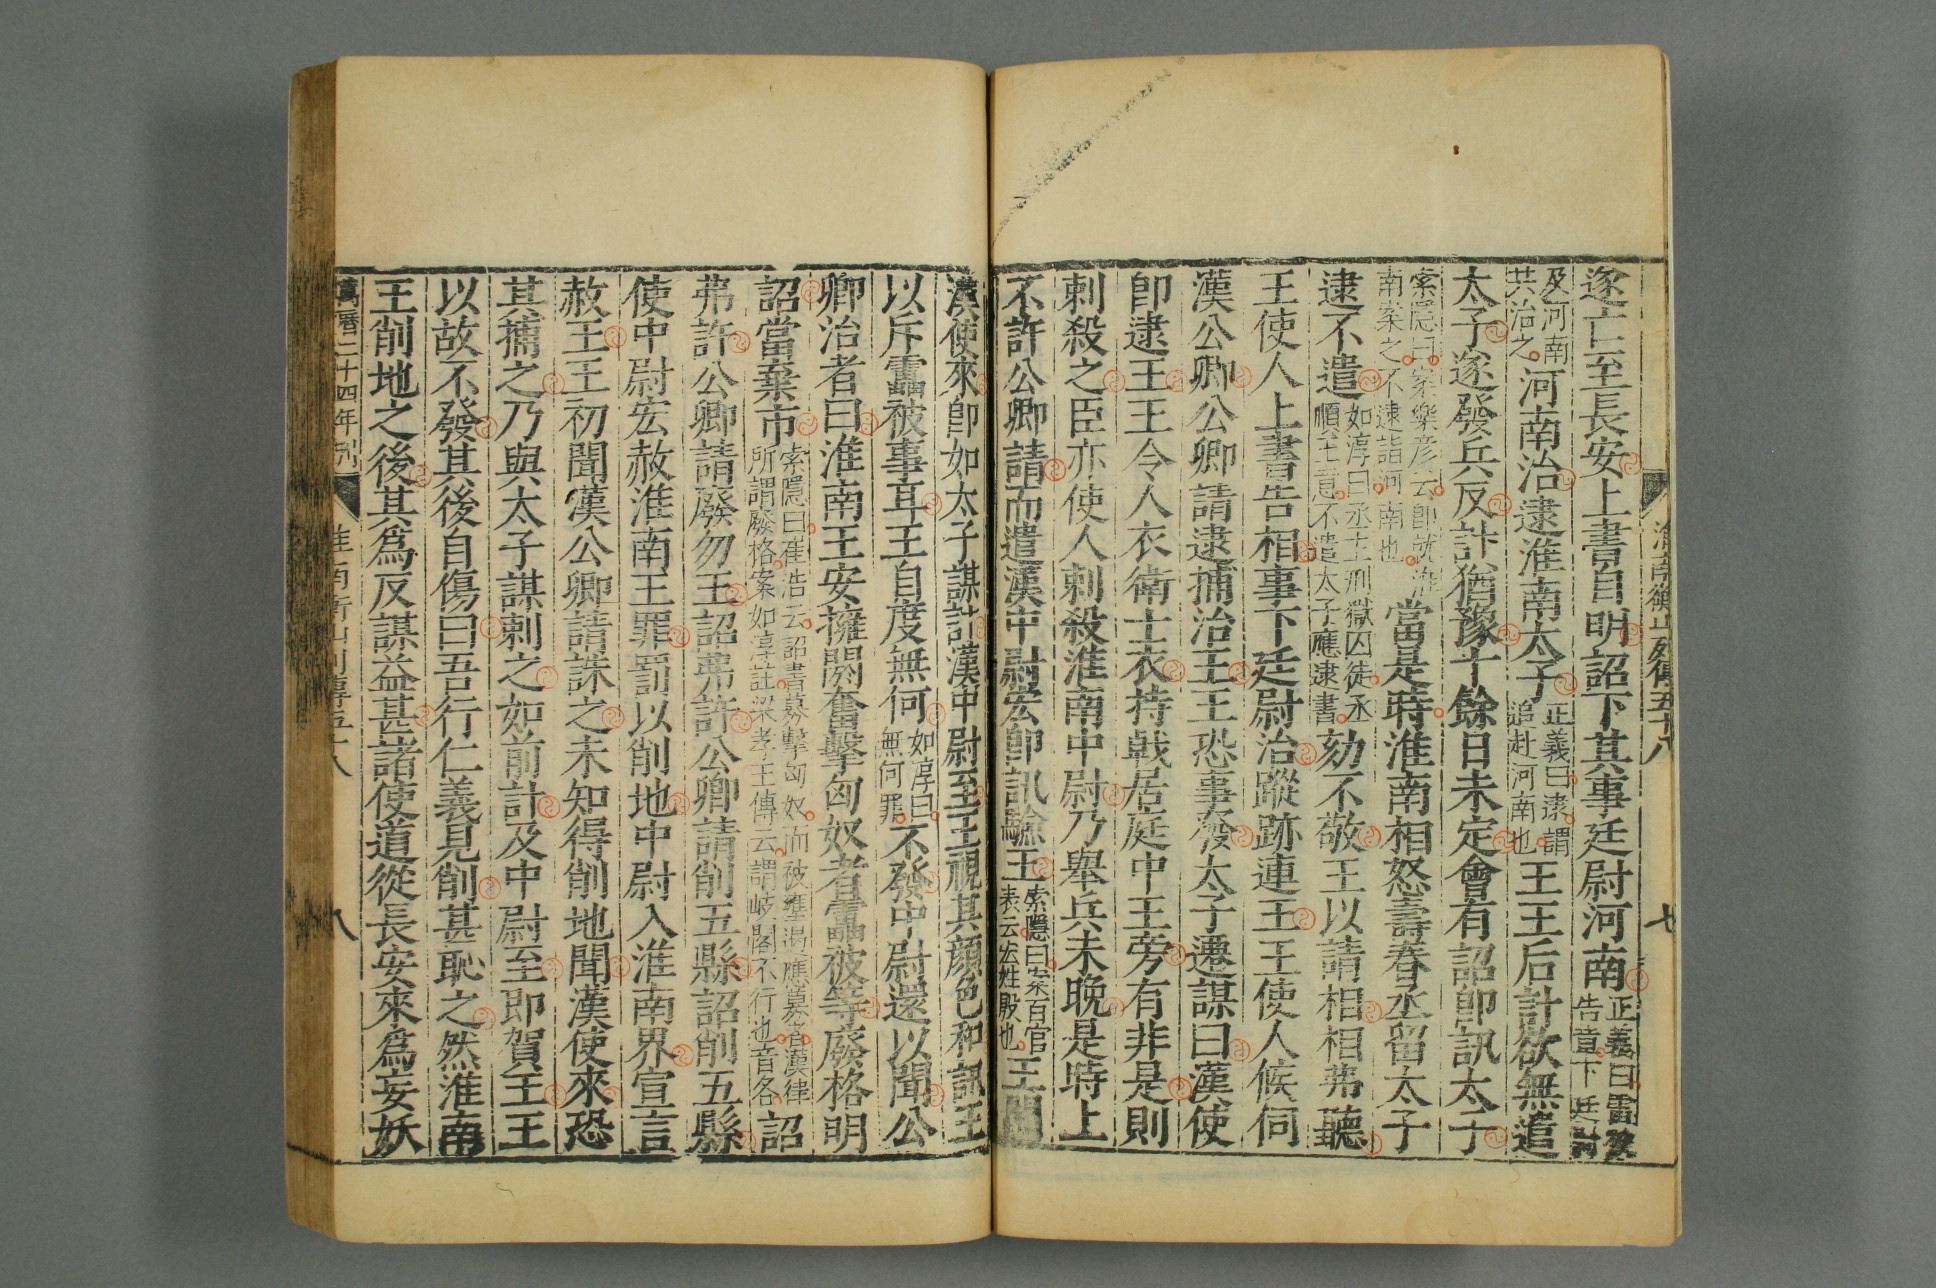 淮南衡山列傳五十八 七
遂亡至長安上書自明詔下其事廷尉河南正義曰雷被告章下廷尉
及河南共治之。河南治逮淮南太子正義曰逮謂追赴河南也王王后計欲無遣
太子遂發兵反計猶豫十餘日未定會有詔卽訊太子
索隱曰案樂彦云卽就淮南案之不逮詣河南也當是時淮南相怒壽春丞留太子
逮不遣如淳曰丞主刑獄囚徒丞順王意不遣太子應逮書劾不敬王以請相相弗聽
王使人上書告相事下廷尉治蹤跡連王王使人候伺
漢公卿公卿請逮捕治王王恐事發太子遷謀曰漢使
卽逮王王令人衣衛士衣持戟居庭中王旁有非是則
刺殺之臣亦使人刺殺淮南中尉乃舉兵未晚是時上
不許公卿請而遣漢中尉宏卽訊驗王索隱曰案百官表云宏姓殷也王聞
漢使來卽如太子謀計漢中尉至王視其顏色和訊王
以斥靁被事耳王自度無何如淳曰無何罪不發中尉還以聞公
卿治者曰淮南王安擁閼奮擊匈奴者靁被等廢格明
詔當棄市索隱曰崔浩云詔書募擊匈奴而被壅遏應募者漢律所謂廢格案如淳註梁孝王傳云謂歧閣不行也音各詔
弗許公卿請廢勿王詔弗許公卿請削五縣詔削五縣
使中尉宏赦淮南王罪罰以削地中尉入淮南界宣言
赦王王初聞漢公卿請誅之未知得削地聞漢使來恐
其捕之乃與太子謀刺之如前計及中尉至卽賀王王
以故不發其後自傷曰吾行仁義見削甚恥之然淮南
王削地之後其爲反謀益甚諸使道從長安來爲妄妖
萬曆二十四年刊 淮南衡山列傳五十八 八